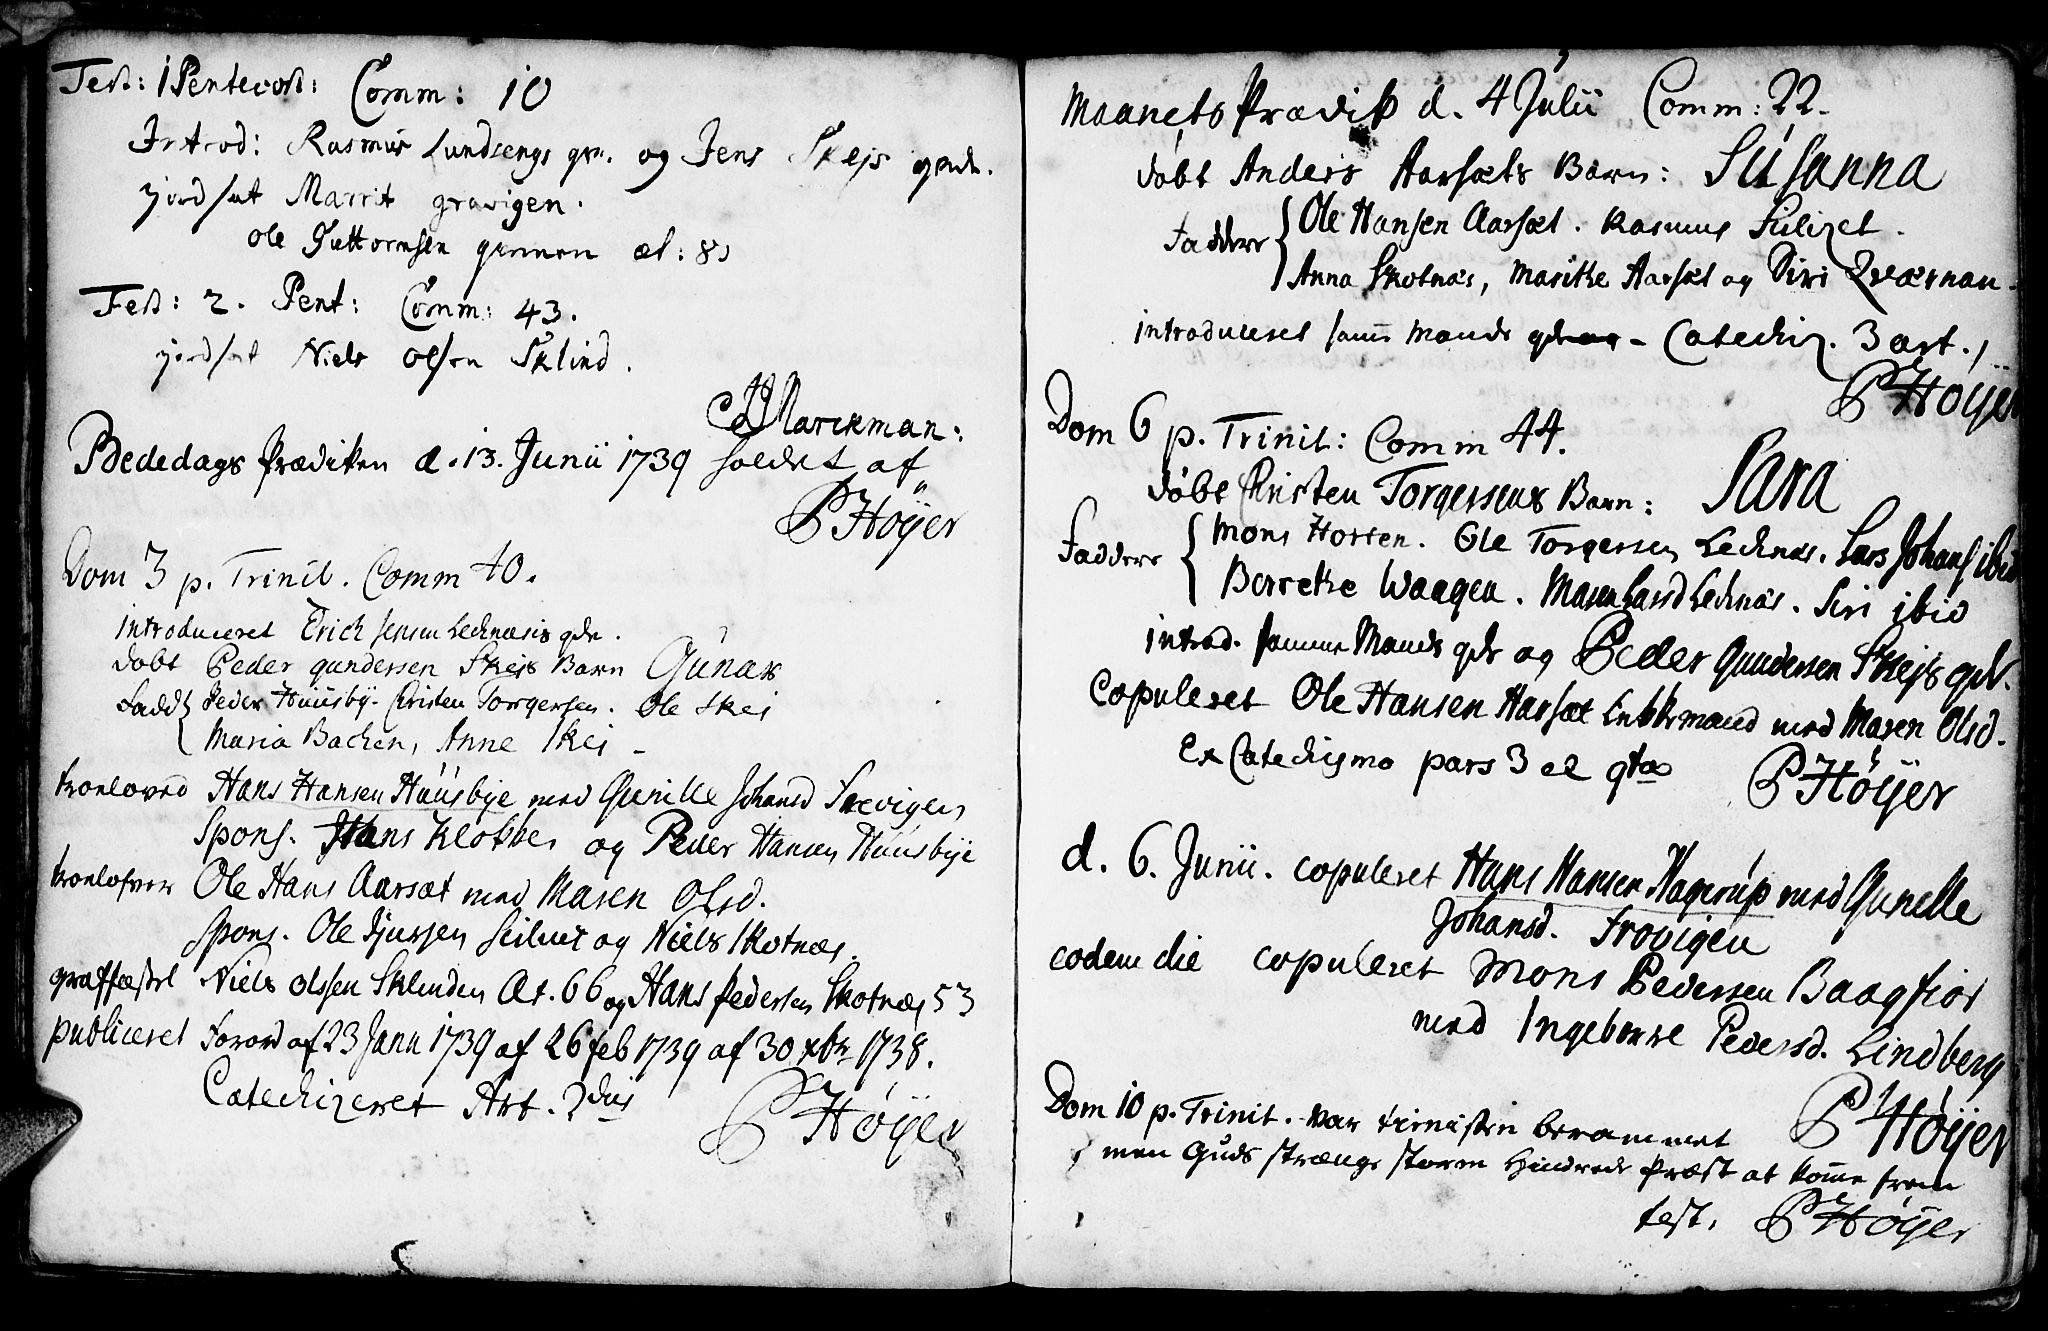 Fest: 1 Pentecost: Comm: 10
Introd: Rasmus Lundsengs qv. og Jens Skejs qvde.
jordsat Marrit gravigen.
Ole Guttormsen æt: 81
Fest: 2. Pent: Comm: 43.
jordsat Niels Olsen Sklind.
Marckman:
Bededags Prædiken d. 13. Junii 1739 holdet af
P Høÿer
Dom 3 p. Trinit. Comm 40.
introduceret Erich Jensen Lecknæsis qde.
døbt Peder gundersen Skejs Barn Gunar
Fadd Peder Huusbÿ. Christen Torgersen. Ole Skei
Maria Bachen, Anne Skei
troeloved Hans Hansen Huusbÿe med Gunille Johansd Frevigen
Spons. Hans Klokker og Peder Hansen Huusbÿe
troelofver Ole Hans Aarsæt med Maren Olsd.
Spons. Ole Siursen og Niels Skotnæs.
graffæstet Niels olssen Sklinden Æt. 66 og Hans Pedersen Skotnæs 53
publiceret Forord af 23 Janu 1739 af 26 feb 1739 af 30 xbr 1738.
Catechizeret Art. 2dus
P Høÿer
Maanets Prædik d. 4 Julii Comm: 22.
døbt Anders Aarsæts Barn: Susanna
Faddere Ole Hansen Aarsæt. Rasmus
Anna Skotnæs, Maritte Aarsæt og Siri Qværnan.
introduceret samme Mands Catechiz. 3 art.
P Høÿer
Dom 6 p. Trinit: Comm 44.
døbt Christen Torgersens Barn: Sara
Faddere Mons Horten. Ole Torgersen Lecknæs. Lars Johans ibid
Berrethe Waagen. Maren Larsd Lecknæs. Siri ibid
introd. samme Mands qde og Peder Gundersen Skejs qde.
Copuleret Ole Hansen Aarsæt Enkkemand med Maren Olsd.
Ex Catechismo pars 3 et qta
P Høÿer
d. 6. Junii. copuleret Hans Hansen Hagerup med Gunelle
Johansd. Frovigen
eodem die copuleret Mons Pedersen Baagfior
med Ingeborre Pedersd. Lindberg
P Høÿer
Dom 10 p. Trinit. var tienisten berammet
men Guds strænge storm hindrede Præst at komme frem
test. P Høÿer